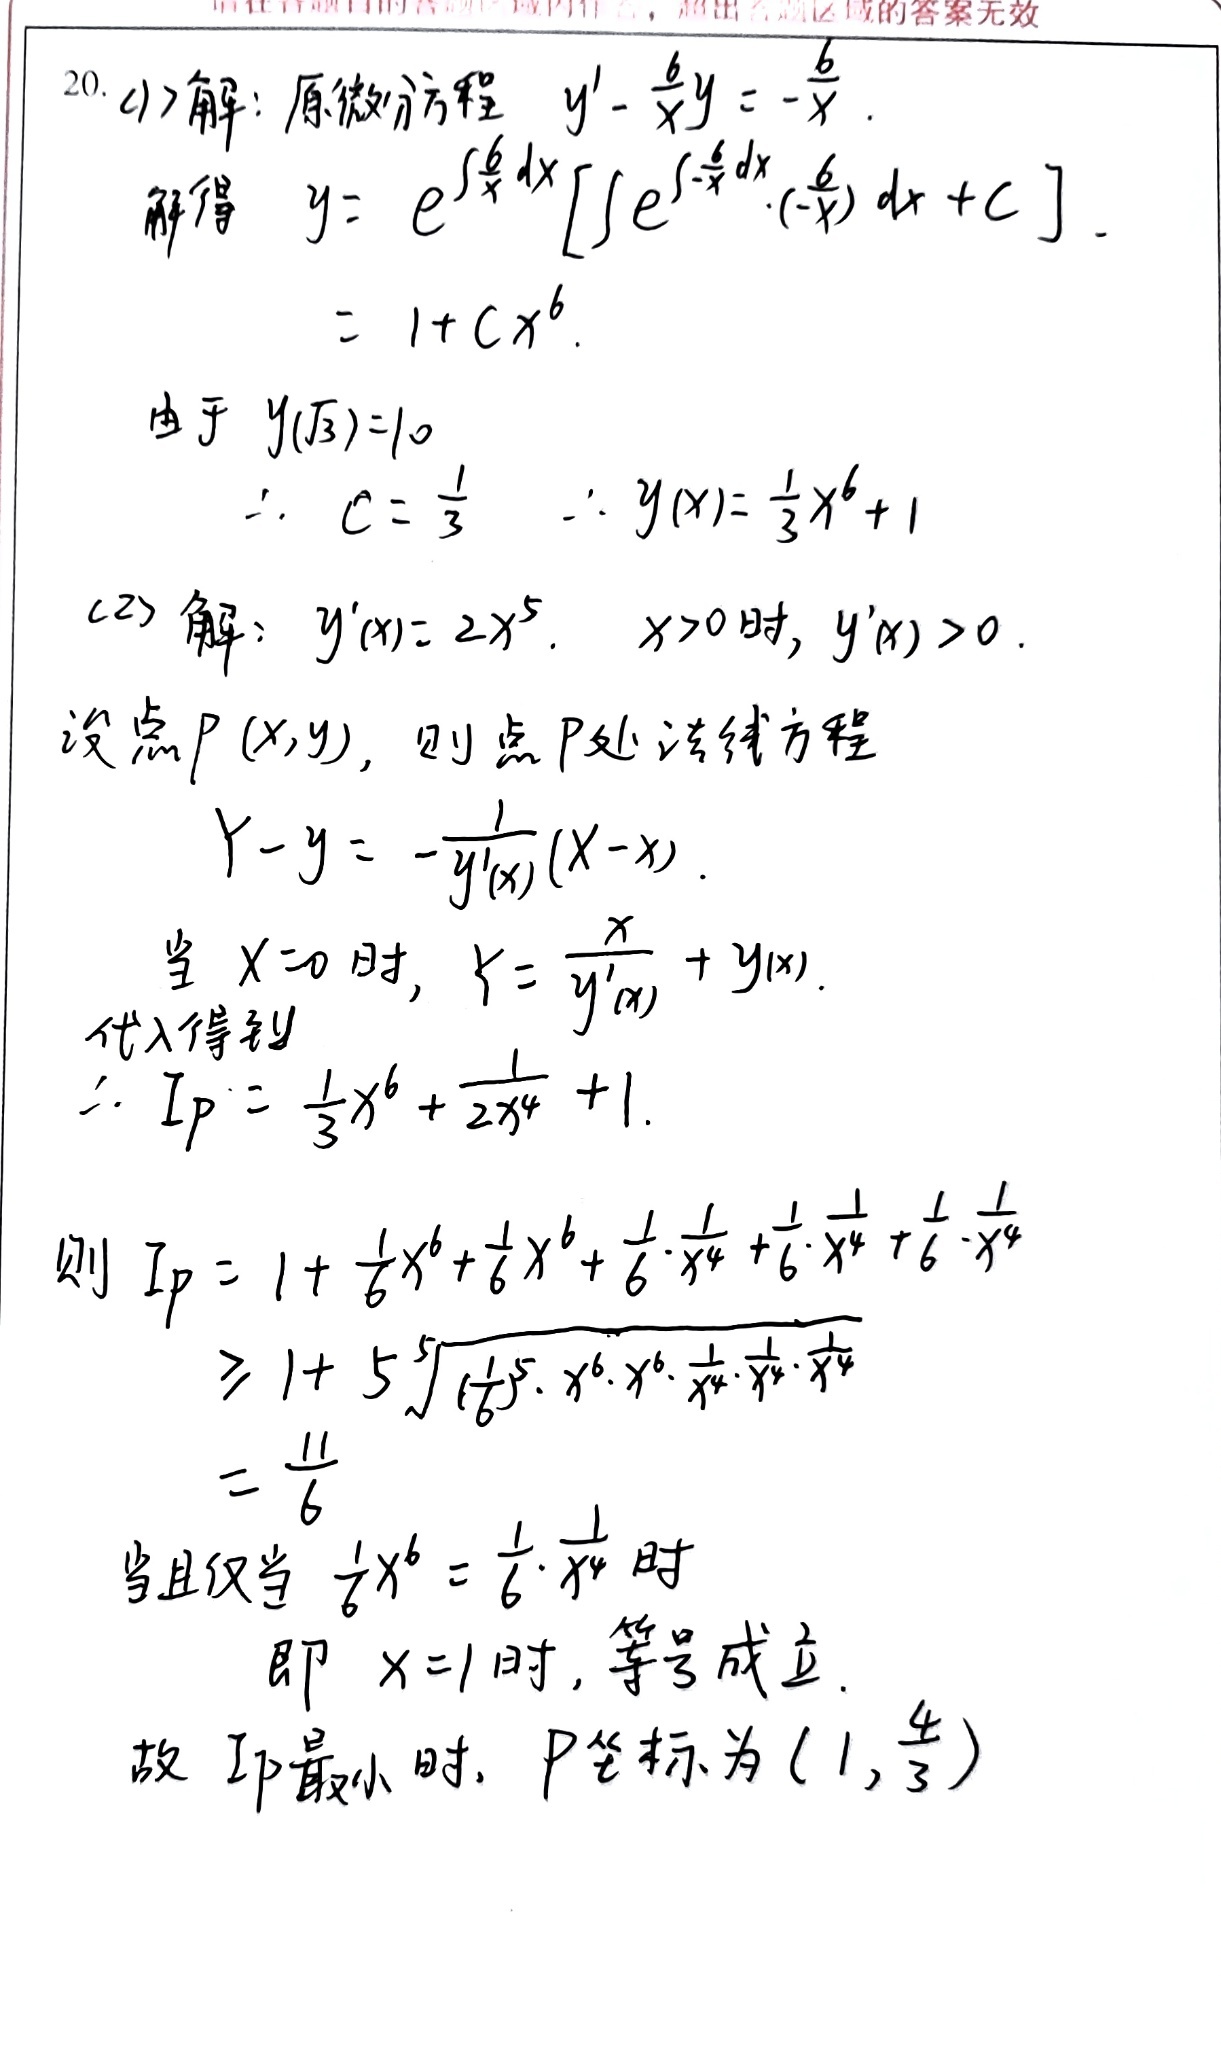 的答案无效
20. (1) 解: 原微分方程 y' - 6/x y = - 6/x .
解得 y = e^{∫6/x dx} [∫e^{∫-6/x dx}·(-6/x) dx + C ] .
= 1 + Cx⁶.
由于 y(√3)=10
∴ C = 1/3 ∴ y(x) = 1/3 x⁶ + 1
(2) 解: y'(x) = 2x⁵. x>0时, y'(x)>0.
设点P(x,y), 则点P处法线方程
Y - y = - 1/y'(x) (X - x).
当 X=0 时, Y = x/y'(x) + y(x).
代入得到
∴ Ip = 1/3 x⁶ + 1/2x⁴ + 1.
则 Ip = 1 + 1/6 x⁶ + 1/6 x⁶ + 1/6 · 1/x⁴ + 1/6 · 1/x⁴ + 1/6 · 1/x⁴
≥ 1 + 5 ⁵√((1/6)⁵ · x⁶ · x⁶ · 1/x⁴ · 1/x⁴ · 1/x⁴)
= 11/6
当且仅当 1/6 x⁶ = 1/6 · 1/x⁴ 时
即 x=1 时, 等号成立.
故 Ip最小时, P坐标为 (1, 4/3)